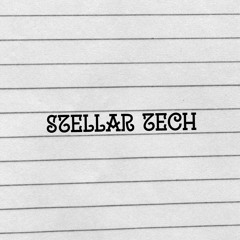 STELLAR TECH